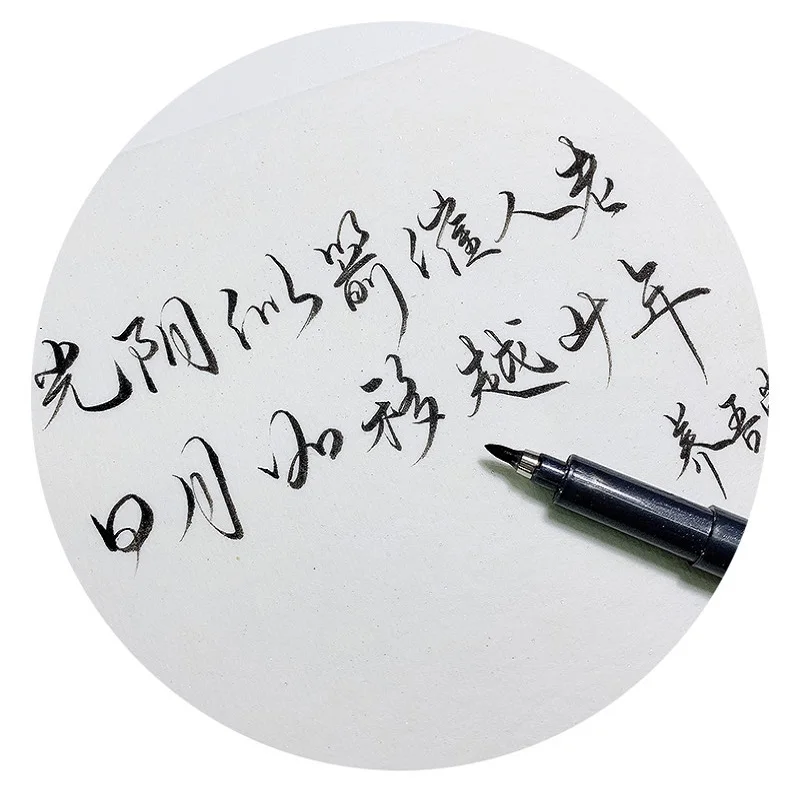 光阴似箭催人老
日月如移越少年
养吾